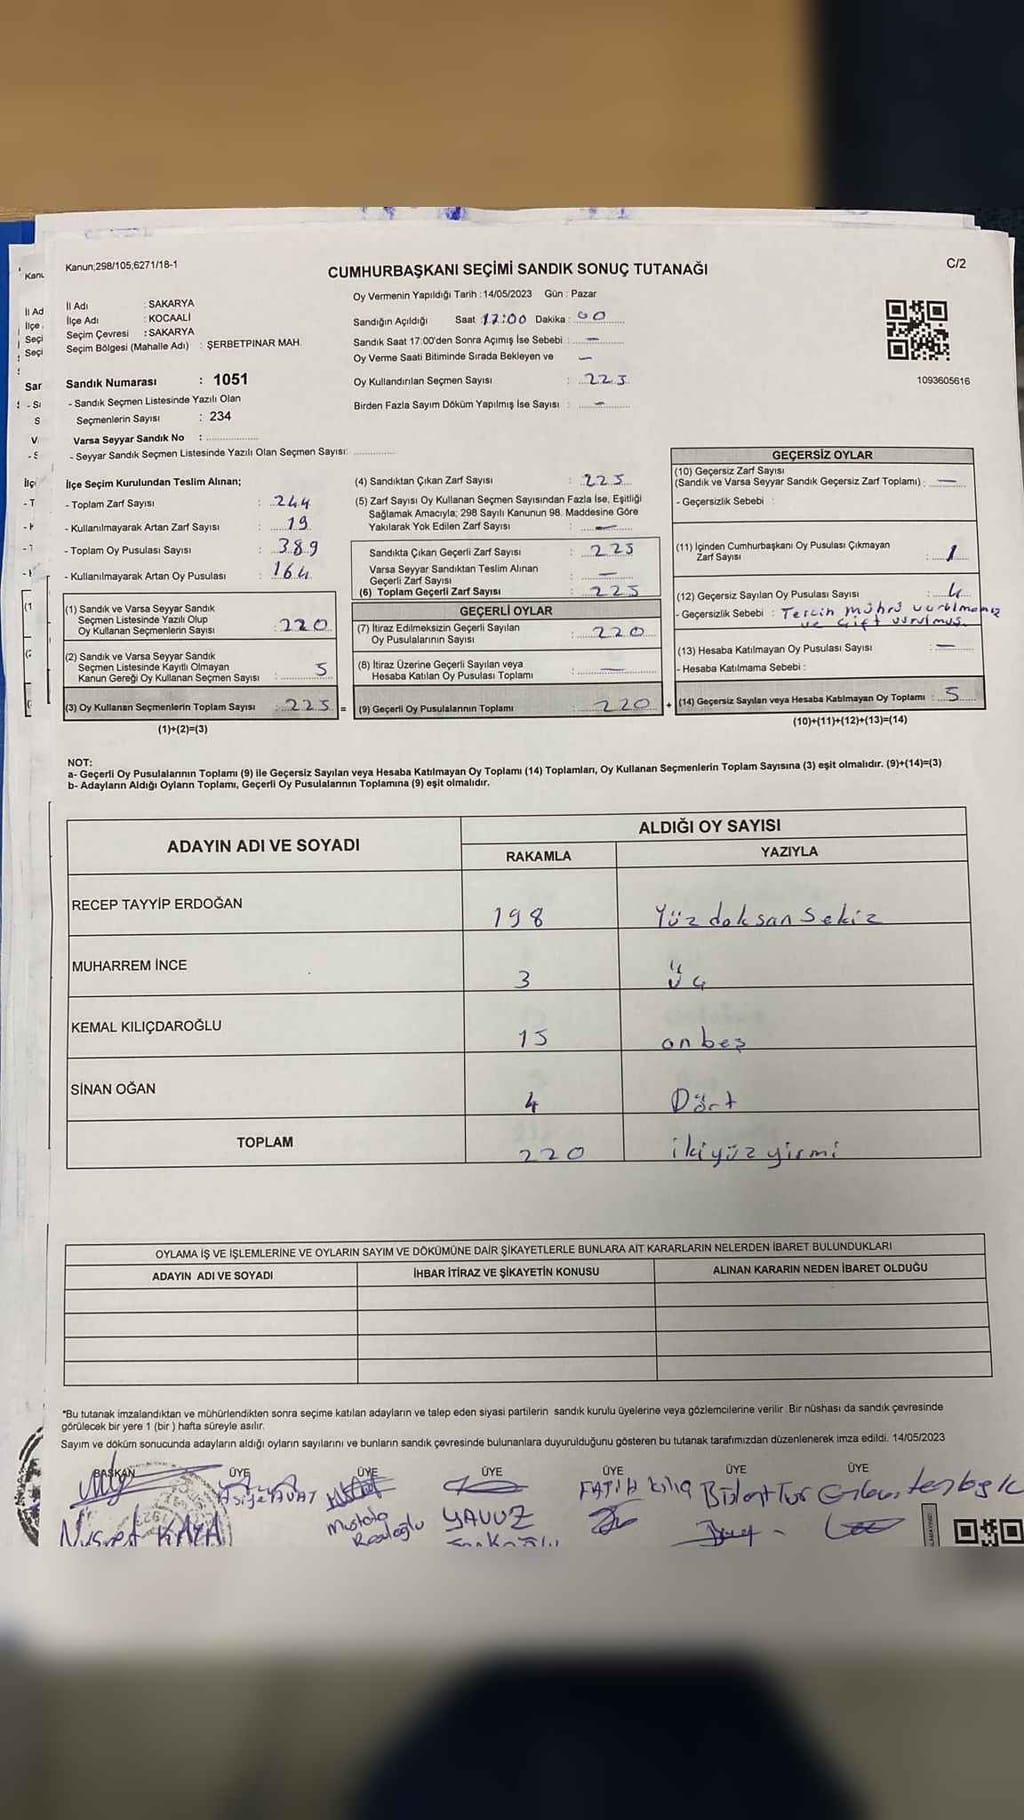 Kanun;298/105;6271/18-1
CUMHURBAŞKANI SEÇİMİ SANDIK SONUÇ TUTANAĞI
C/2
Oy Vermenin Yapıldığı Tarih : 14/05/2023 Gün : Pazar
İl Adı : SAKARYA
İlçe Adı : KOCAALİ
Seçim Çevresi : SAKARYA
Seçim Bölgesi (Mahalle Adı) : ŞERBETPINAR MAH.
Sandığın Açıldığı Saat 17:00 Dakika : 00
Sandık Saat 17:00'den Sonra Açımış İse Sebebi : —
Oy Verme Saati Bitiminde Sırada Bekleyen ve —
Oy Kullandırılan Seçmen Sayısı : 225
Birden Fazla Sayım Döküm Yapılmış İse Sayısı : —
1093605616
Sandık Numarası : 1051
- Sandık Seçmen Listesinde Yazılı Olan
Seçmenlerin Sayısı : 234
Varsa Seyyar Sandık No :
- Seyyar Sandık Seçmen Listesinde Yazılı Olan Seçmen Sayısı:
İlçe Seçim Kurulundan Teslim Alınan;
- Toplam Zarf Sayısı : 244
- Kullanılmayarak Artan Zarf Sayısı : 19
- Toplam Oy Pusulası Sayısı : 389
- Kullanılmayarak Artan Oy Pusulası : 164
(1) Sandık ve Varsa Seyyar Sandık
Seçmen Listesinde Yazılı Olup
Oy Kullanan Seçmenlerin Sayısı : 220
(2) Sandık ve Varsa Seyyar Sandık
Seçmen Listesinde Kayıtlı Olmayan
Kanun Gereği Oy Kullanan Seçmen Sayısı : 5
(3) Oy Kullanan Seçmenlerin Toplam Sayısı : 225 =
(1)+(2)=(3)
(4) Sandıktan Çıkan Zarf Sayısı : 225
(5) Zarf Sayısı Oy Kullanan Seçmen Sayısından Fazla İse, Eşitliği
Sağlamak Amacıyla; 298 Sayılı Kanunun 98. Maddesine Göre
Yakılarak Yok Edilen Zarf Sayısı : —
Sandıkta Çıkan Geçerli Zarf Sayısı : 225
Varsa Seyyar Sandıktan Teslim Alınan
Geçerli Zarf Sayısı : —
(6) Toplam Geçerli Zarf Sayısı : 225
GEÇERLİ OYLAR
(7) İtiraz Edilmeksizin Geçerli Sayılan
Oy Pusulalarının Sayısı : 220
(8) İtiraz Üzerine Geçerli Sayılan veya
Hesaba Katılan Oy Pusulası Toplamı : —
(9) Geçerli Oy Pusulalarının Toplamı : 220 +
GEÇERSİZ OYLAR
(10) Geçersiz Zarf Sayısı
(Sandık ve Varsa Seyyar Sandık Geçersiz Zarf Toplamı) : —
- Geçersizlik Sebebi :
(11) İçinden Cumhurbaşkanı Oy Pusulası Çıkmayan
Zarf Sayısı : 1
(12) Geçersiz Sayılan Oy Pusulası Sayısı : 4
- Geçersizlik Sebebi : Tercih mührü vurulmamış
ve çift vurulmuş.
(13) Hesaba Katılmayan Oy Pusulası Sayısı : —
- Hesaba Katılmama Sebebi :
(14) Geçersiz Sayılan veya Hesaba Katılmayan Oy Toplamı : 5
(10)+(11)+(12)+(13)=(14)
NOT:
a- Geçerli Oy Pusulalarının Toplamı (9) ile Geçersiz Sayılan veya Hesaba Katılmayan Oy Toplamı (14) Toplamları, Oy Kullanan Seçmenlerin Toplam Sayısına (3) eşit olmalıdır. (9)+(14)=(3)
b- Adayların Aldığı Oyların Toplamı, Geçerli Oy Pusulalarının Toplamına (9) eşit olmalıdır.
ADAYIN ADI VE SOYADI ALDIĞI OY SAYISI
RAKAMLA YAZIYLA
RECEP TAYYİP ERDOĞAN 198 Yüzdoksan Sekiz
MUHARREM İNCE 3 üç
KEMAL KILIÇDAROĞLU 15 onbeş
SİNAN OĞAN 4 Dört
TOPLAM 220 ikiyüzyirmi
OYLAMA İŞ VE İŞLEMLERİNE VE OYLARIN SAYIM VE DÖKÜMÜNE DAİR ŞİKAYETLERLE BUNLARA AİT KARARLARIN NELERDEN İBARET BULUNDUKLARI
ADAYIN ADI VE SOYADI İHBAR İTİRAZ VE ŞİKAYETİN KONUSU ALINAN KARARIN NEDEN İBARET OLDUĞU
*Bu tutanak imzalandıktan ve mühürlendikten sonra seçime katılan adayların ve talep eden siyasi partilerin sandık kurulu üyelerine veya gözlemcilerine verilir. Bir nüshası da sandık çevresinde
görülecek bir yere 1 (bir ) hafta süreyle asılır.
Sayım ve döküm sonucunda adayların aldığı oyların sayılarını ve bunların sandık çevresinde bulunanlara duyurulduğunu gösteren bu tutanak tarafımızdan düzenlenerek imza edildi. 14/05/2023
BAŞKAN ÜYE ÜYE ÜYE ÜYE ÜYE ÜYE
FATİH Kılıç
KAYA Mustafa YAVUZ